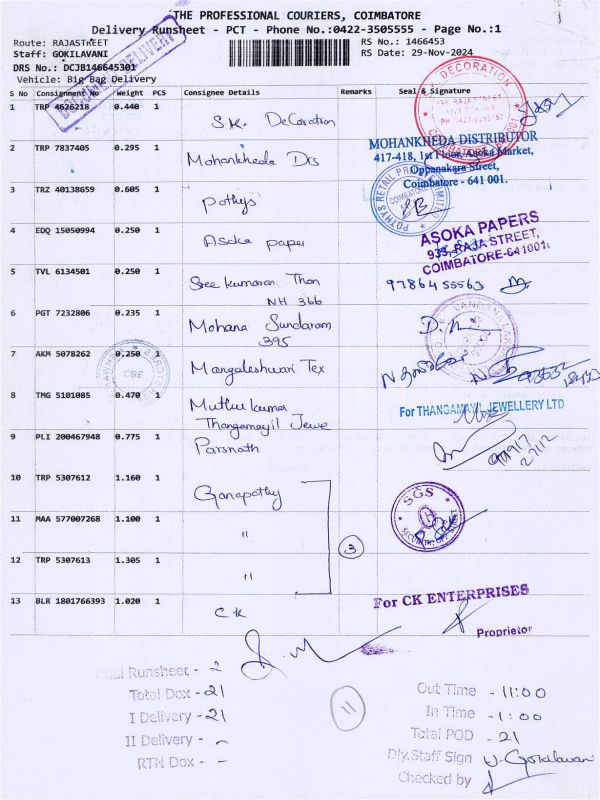 THE PROFESSIONAL COURIERS, COIMBATORE
Delivery Runsheet - PCT - Phone No.:0422-3505555 - Page No.:1
Route: RAJASTREET
Staff: GOKILAVANI
DRS No.: DCJB146645301
Vehicle: Big Bag Delivery
RS No.: 1466453
RS Date: 29-Nov-2024
S No Consignment No Weight PCS Consignee Details Remarks Seal & Signature
1 TRP 4626218 0.440 1 S.K. Decoration
DECORATION
2 TRP 7837405 0.295 1 Mohankheda Drs
MOHANKHEDA DISTRIBUTOR
417-418, 1st Floor, Asoka Market,
Oppanakara Street,
Coimbatore - 641 001.
3 TRZ 40138659 0.605 1 Pothys
POTHYS RETAIL PRIVATE LIMITED
COIMBATORE
4 EDQ 15050994 0.250 1 Asoka paper
ASOKA PAPERS
935, RAJA STREET,
COIMBATORE-641001.
5 TVL 6134501 0.250 1 Sree Kumaran Than
NH 366
9786455563
6 PGT 7232806 0.235 1 Mohana Sundaram
395
7 AKM 5078262 0.250 1 Mangaleshwari Tex
CBE
8 TMG 5101085 0.470 1 Muthu Kumar
Thangamayil Jewe
For THANGAMAYIL JEWELLERY LTD
9 PLI 200467948 0.775 1 Parsnath
10 TRP 5307612 1.160 1 Ganapathy
SGS
11 MAA 577007268 1.100 1 "
3
12 TRP 5307613 1.305 1 "
13 BLR 1801766393 1.020 1 CK
For CK ENTERPRISES
Proprietor
Total Runsheet - 2
Total Dox - 21
I Delivery - 21
II Delivery - -
RTN Dox - -
11
Out Time - 11:00
In Time - 1:00
Total POD - 21
Dly.Staff Sign V. Gokilavani
Checked by